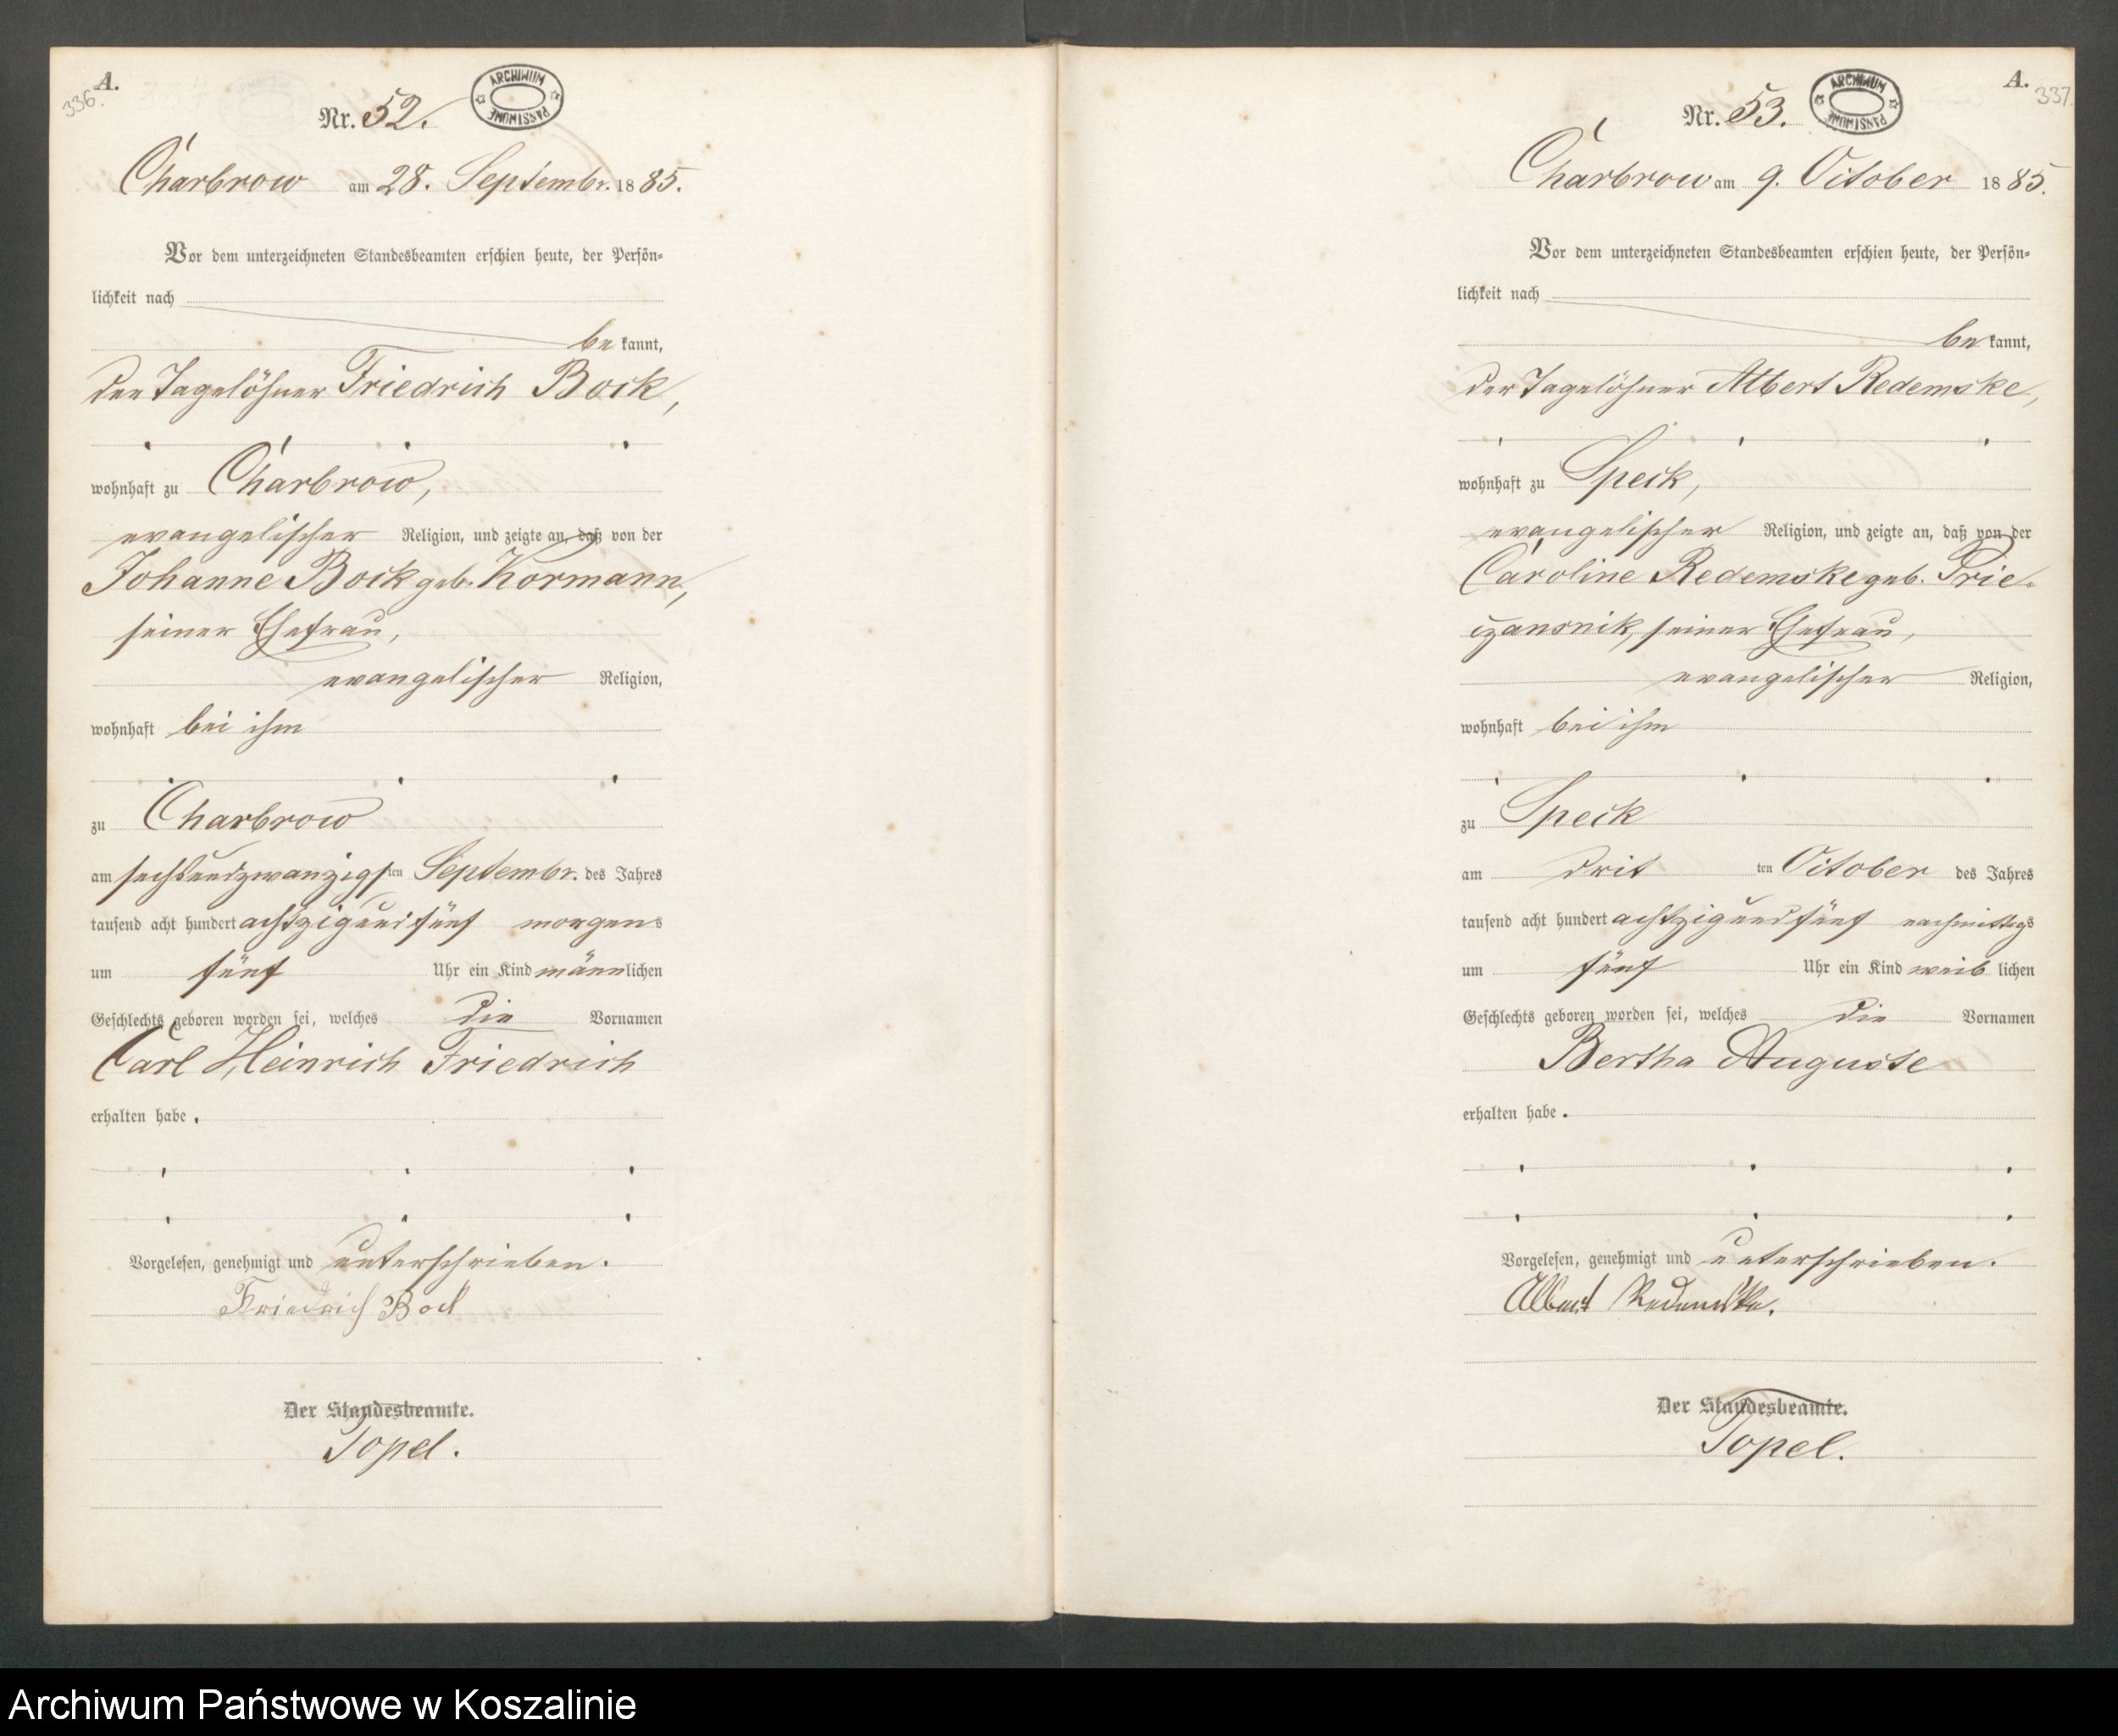 A.
336.
Nr. 52.
ARCHIWUM PAŃSTWOWE
Charbrow am 28. Septembr. 1885.
Vor dem unterzeichneten Standesbeamten erschien heute, der Persön-
lichkeit nach
be kannt,
der Tagelöhner Friedrich Bock,
wohnhaft zu Charbrow,
evangelischer Religion, und zeigte an, daß von der
Johanne Bock geb. Kormann,
seiner Ehefrau,
evangelischer Religion,
wohnhaft bei ihm
zu Charbrow
am sechsundzwanzigsten Septembr. des Jahres
tausend acht hundert achtzigundfünf morgens
um fünf Uhr ein Kind männlichen
Geschlechts geboren worden sei, welches die Vornamen
Carl Heinrich Friedrich
erhalten habe.
Vorgelesen, genehmigt und unterschrieben.
Friedrich Bock
Der Standesbeamte.
Topel.
A.
337.
Nr. 53.
ARCHIWUM PAŃSTWOWE
Charbrow am 9. October 1885.
Vor dem unterzeichneten Standesbeamten erschien heute, der Persön-
lichkeit nach
be kannt,
der Tagelöhner Albert Redemske,
wohnhaft zu Speck,
evangelischer Religion, und zeigte an, daß von der
Caroline Redemske geb. Prie-
czansnik, seiner Ehefrau,
evangelischer Religion,
wohnhaft bei ihm
zu Speck
am dritten October des Jahres
tausend acht hundert achtzigundfünf nachmittags
um fünf Uhr ein Kind weiblichen
Geschlechts geboren worden sei, welches die Vornamen
Bertha Auguste
erhalten habe.
Vorgelesen, genehmigt und unterschrieben.
Albert Redemske.
Der Standesbeamte.
Topel.
Archiwum Państwowe w Koszalinie